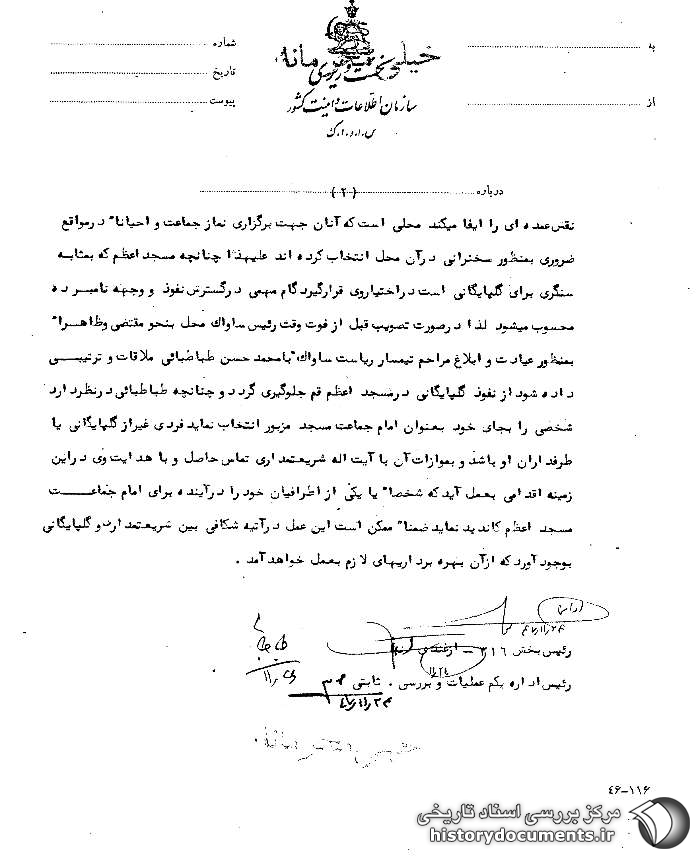 خیلی محرمانه
به
شماره
تاریخ
سازمان اطلاعات و امنیت کشور
از
پیوست
س.ا.و.ا.ک
درباره (۲)
نقش عمده ای را ایفا میکند محلی است که آنان جهت برگزاری نماز جماعت و احیانا" در مواقع
ضروری بمنظور سخنرانی در آن محل انتخاب کرده اند علیهذا چنانچه مسجد اعظم که بمثابه
سنگری برای گلپایگانی است در اختیار وی قرار گیرد گام مهمی در گسترش نفوذ و وجهه نامبرده
محسوب میشود لذا در صورت تصویب قبل از فوت وقت رئیس ساواک محل بنحو مقتضی و ظاهرا"
بمنظور عیادت و ابلاغ مراحم تیمسار ریاست ساواک با محمد حسن طباطبائی ملاقات و ترتیبی
داده شود از نفوذ گلپایگانی در مسجد اعظم قم جلوگیری گردد و چنانچه طباطبائی در نظر دارد
شخصی را بجای خود بعنوان امام جماعت مسجد مزبور انتخاب نماید فردی غیر از گلپایگانی یا
طرفداران او باشد و بموازات آن با آیت اله شریعتمداری تماس حاصل و با هدایت وی در این
زمینه اقدامی بعمل آید که شخصا" یا یکی از اطرافیان خود را در آینده برای امام جماعت
مسجد اعظم کاندید نماید ضمنا" ممکن است این عمل در آتیه شکافی بین شریعتمداری و گلپایگانی
بوجود آورد که از آن بهره برداریهای لازم بعمل خواهد آمد .
رئیس بخش ۳۱۶ -
رئیس اداره یکم عملیات و بررسی . ثابتی
۴۶-۱۱۶
مرکز بررسی اسناد تاریخی
historydocuments.ir